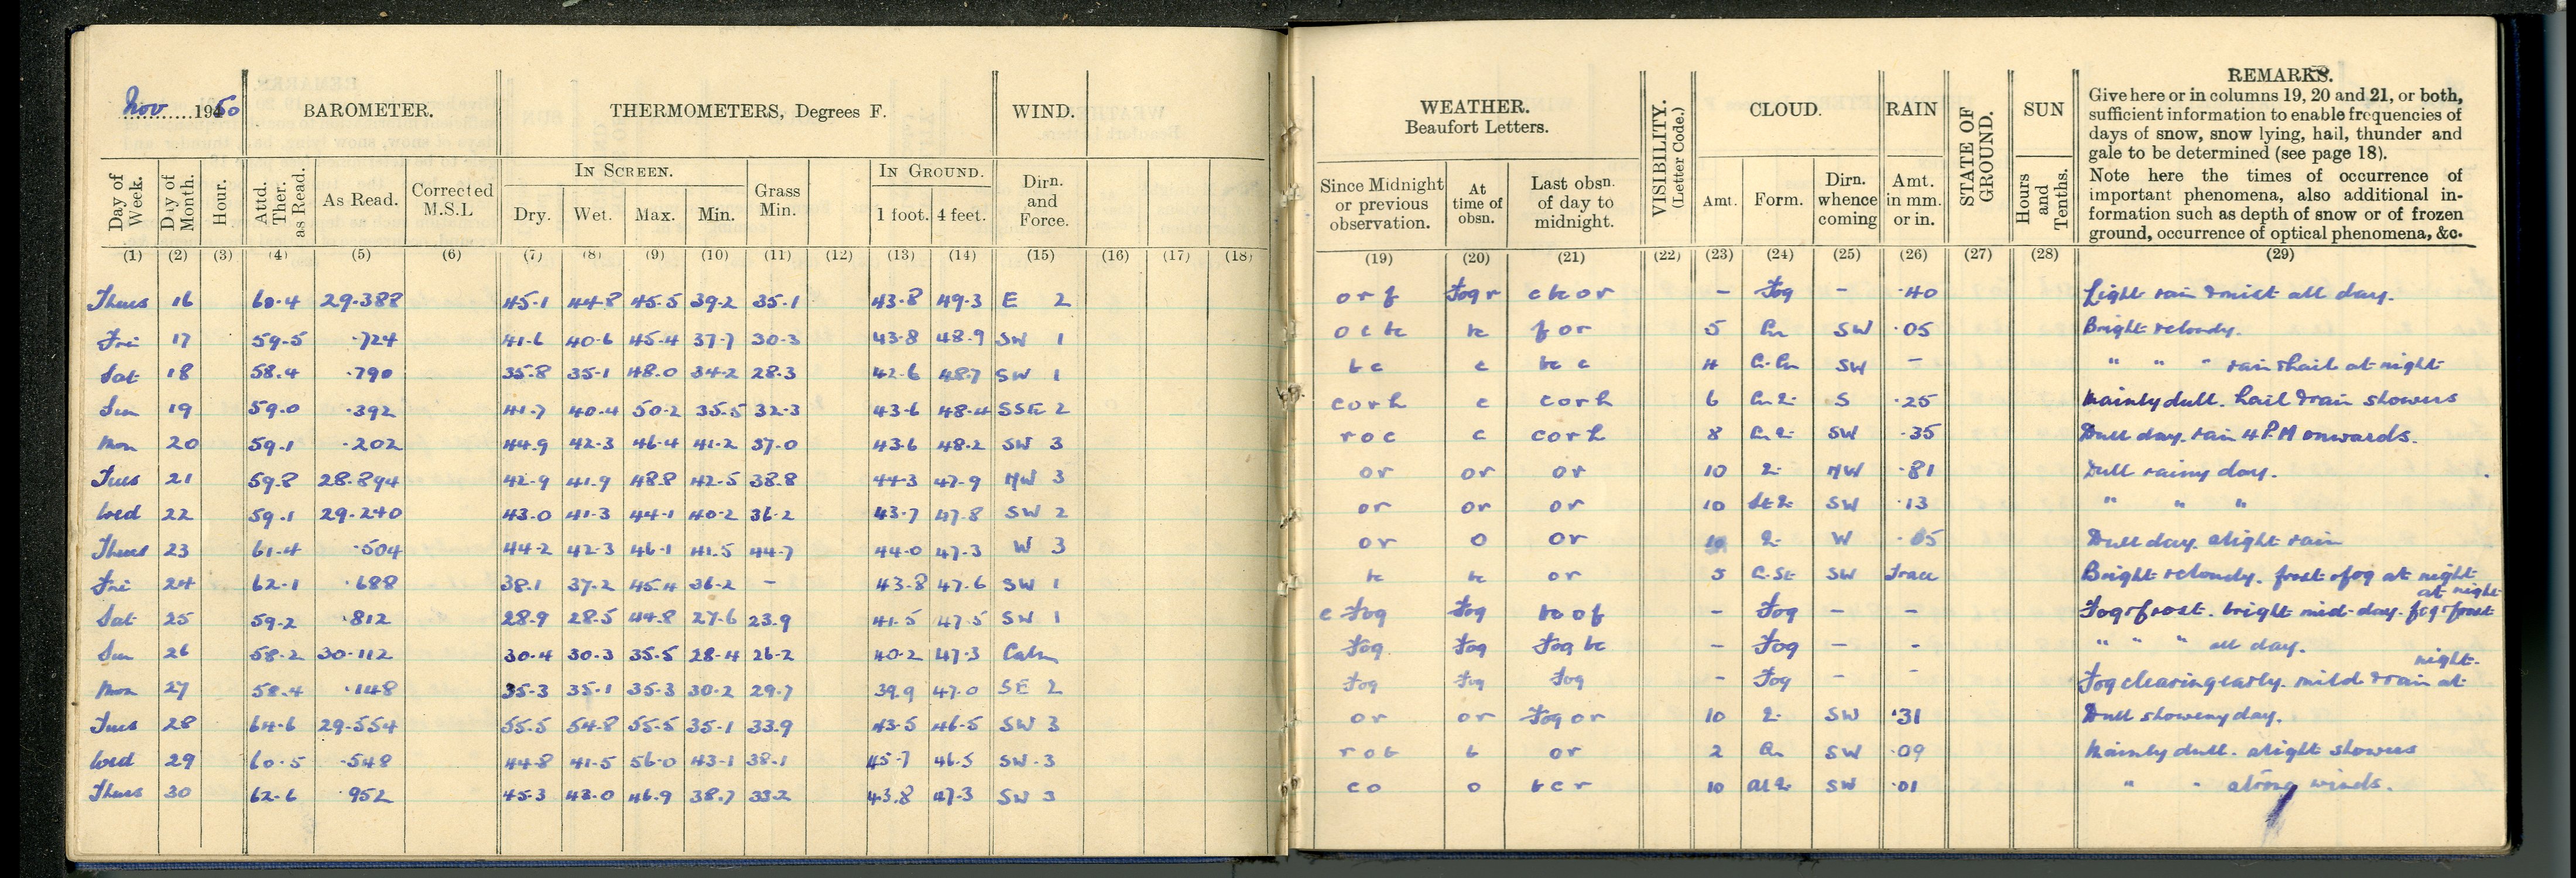 Nov 1950 BAROMETER. THERMOMETERS, Degrees F. WIND. WEATHER. Beaufort Letters. VISIBILITY. (Letter Code.) CLOUD. RAIN STATE OF GROUND. SUN REMARKS.
Give here or in columns 19, 20 and 21, or both,
sufficient information to enable frequencies of
days of snow, snow lying, hail, thunder and
gale to be determined (see page 18).
Note here the times of occurrence of
important phenomena, also additional in-
formation such as depth of snow or of frozen
ground, occurrence of optical phenomena, &c.
Day of Week. Day of Month. Hour. Attd. Ther. as Read. As Read. Corrected M.S.L IN SCREEN. Dry. Wet. Max. Min. Grass Min. IN GROUND. 1 foot. 4 feet. Dirn. and Force. Since Midnight or previous observation. At time of obsn. Last obsn. of day to midnight. Amt. Form. Dirn. whence coming Amt. in mm. or in. Hours and Tenths.
(1) (2) (3) (4) (5) (6) (7) (8) (9) (10) (11) (12) (13) (14) (15) (16) (17) (18) (19) (20) (21) (22) (23) (24) (25) (26) (27) (28) (29)
Thurs 16 60.4 29.388 45.1 44.8 45.5 39.2 35.1 43.8 49.3 E 2 o r f Fog r c bc o r - Fog - .40 Light rain & mist all day.
Fri 17 59.5 .724 41.6 40.6 45.4 37.7 30.3 43.8 48.9 SW 1 o c bc bc f o r 5 Cu SW .05 Bright & cloudy.
Sat 18 58.4 .790 35.8 35.1 48.0 34.2 28.3 42.6 48.7 SW 1 b c c bc c 4 C.Cu SW - " " " rain & hail at night
Sun 19 59.0 .392 41.7 40.4 50.2 35.5 32.3 43.6 48.4 SSE 2 c o r h c c o r h 6 S .25 Mainly dull. hail & rain showers
Mon 20 59.1 .202 44.9 42.3 46.4 41.2 37.0 43.6 48.2 SW 3 r o c c c o r h 8 SW .35 Dull day. rain 4 P.M onwards.
Tues 21 59.8 28.894 42.9 41.9 48.8 42.5 38.8 44.3 47.9 NW 3 o r o r o r 10 NW .81 Dull rainy day.
Wed 22 59.1 29.240 43.0 41.3 44.1 40.2 36.2 43.7 47.8 SW 2 o r o r o r 10 SW .13 " " "
Thurs 23 61.4 .504 44.2 42.3 46.1 41.5 44.7 44.0 47.3 W 3 o r o o r 10 W .05 Dull day. slight rain
Fri 24 62.1 .688 38.1 37.2 45.4 36.2 - 43.8 47.6 SW 1 bc bc o r 5 C.St SW Trace Bright & cloudy. frost & fog at night
Sat 25 59.2 .812 28.9 28.5 44.8 27.6 23.9 41.5 47.5 SW 1 c Fog Fog bc o f - Fog - - Fog & frost. bright mid-day. fog & frost at night
Sun 26 58.2 30.112 30.4 30.3 35.5 28.4 26.2 40.2 47.3 Calm Fog Fog Fog bc - Fog - - " " " all day.
Mon 27 58.4 .148 35.3 35.1 35.3 30.2 29.7 39.9 47.0 SE 2 Fog Fog Fog - Fog - - Fog clearing early. mild & rain at night.
Tues 28 64.6 29.554 55.5 54.8 55.5 35.1 33.9 43.5 46.5 SW 3 o r o r Fog o r 10 SW .31 Dull showery day.
Wed 29 60.5 .548 44.8 41.5 56.0 43.1 38.1 45.7 46.5 SW.3 r o b b o r 2 Cu SW .09 Mainly dull. slight showers
Thurs 30 62.6 .952 45.3 43.0 46.9 38.7 33.2 43.8 47.3 SW 3 c o o b c r 10 SW .01 " " strong winds.